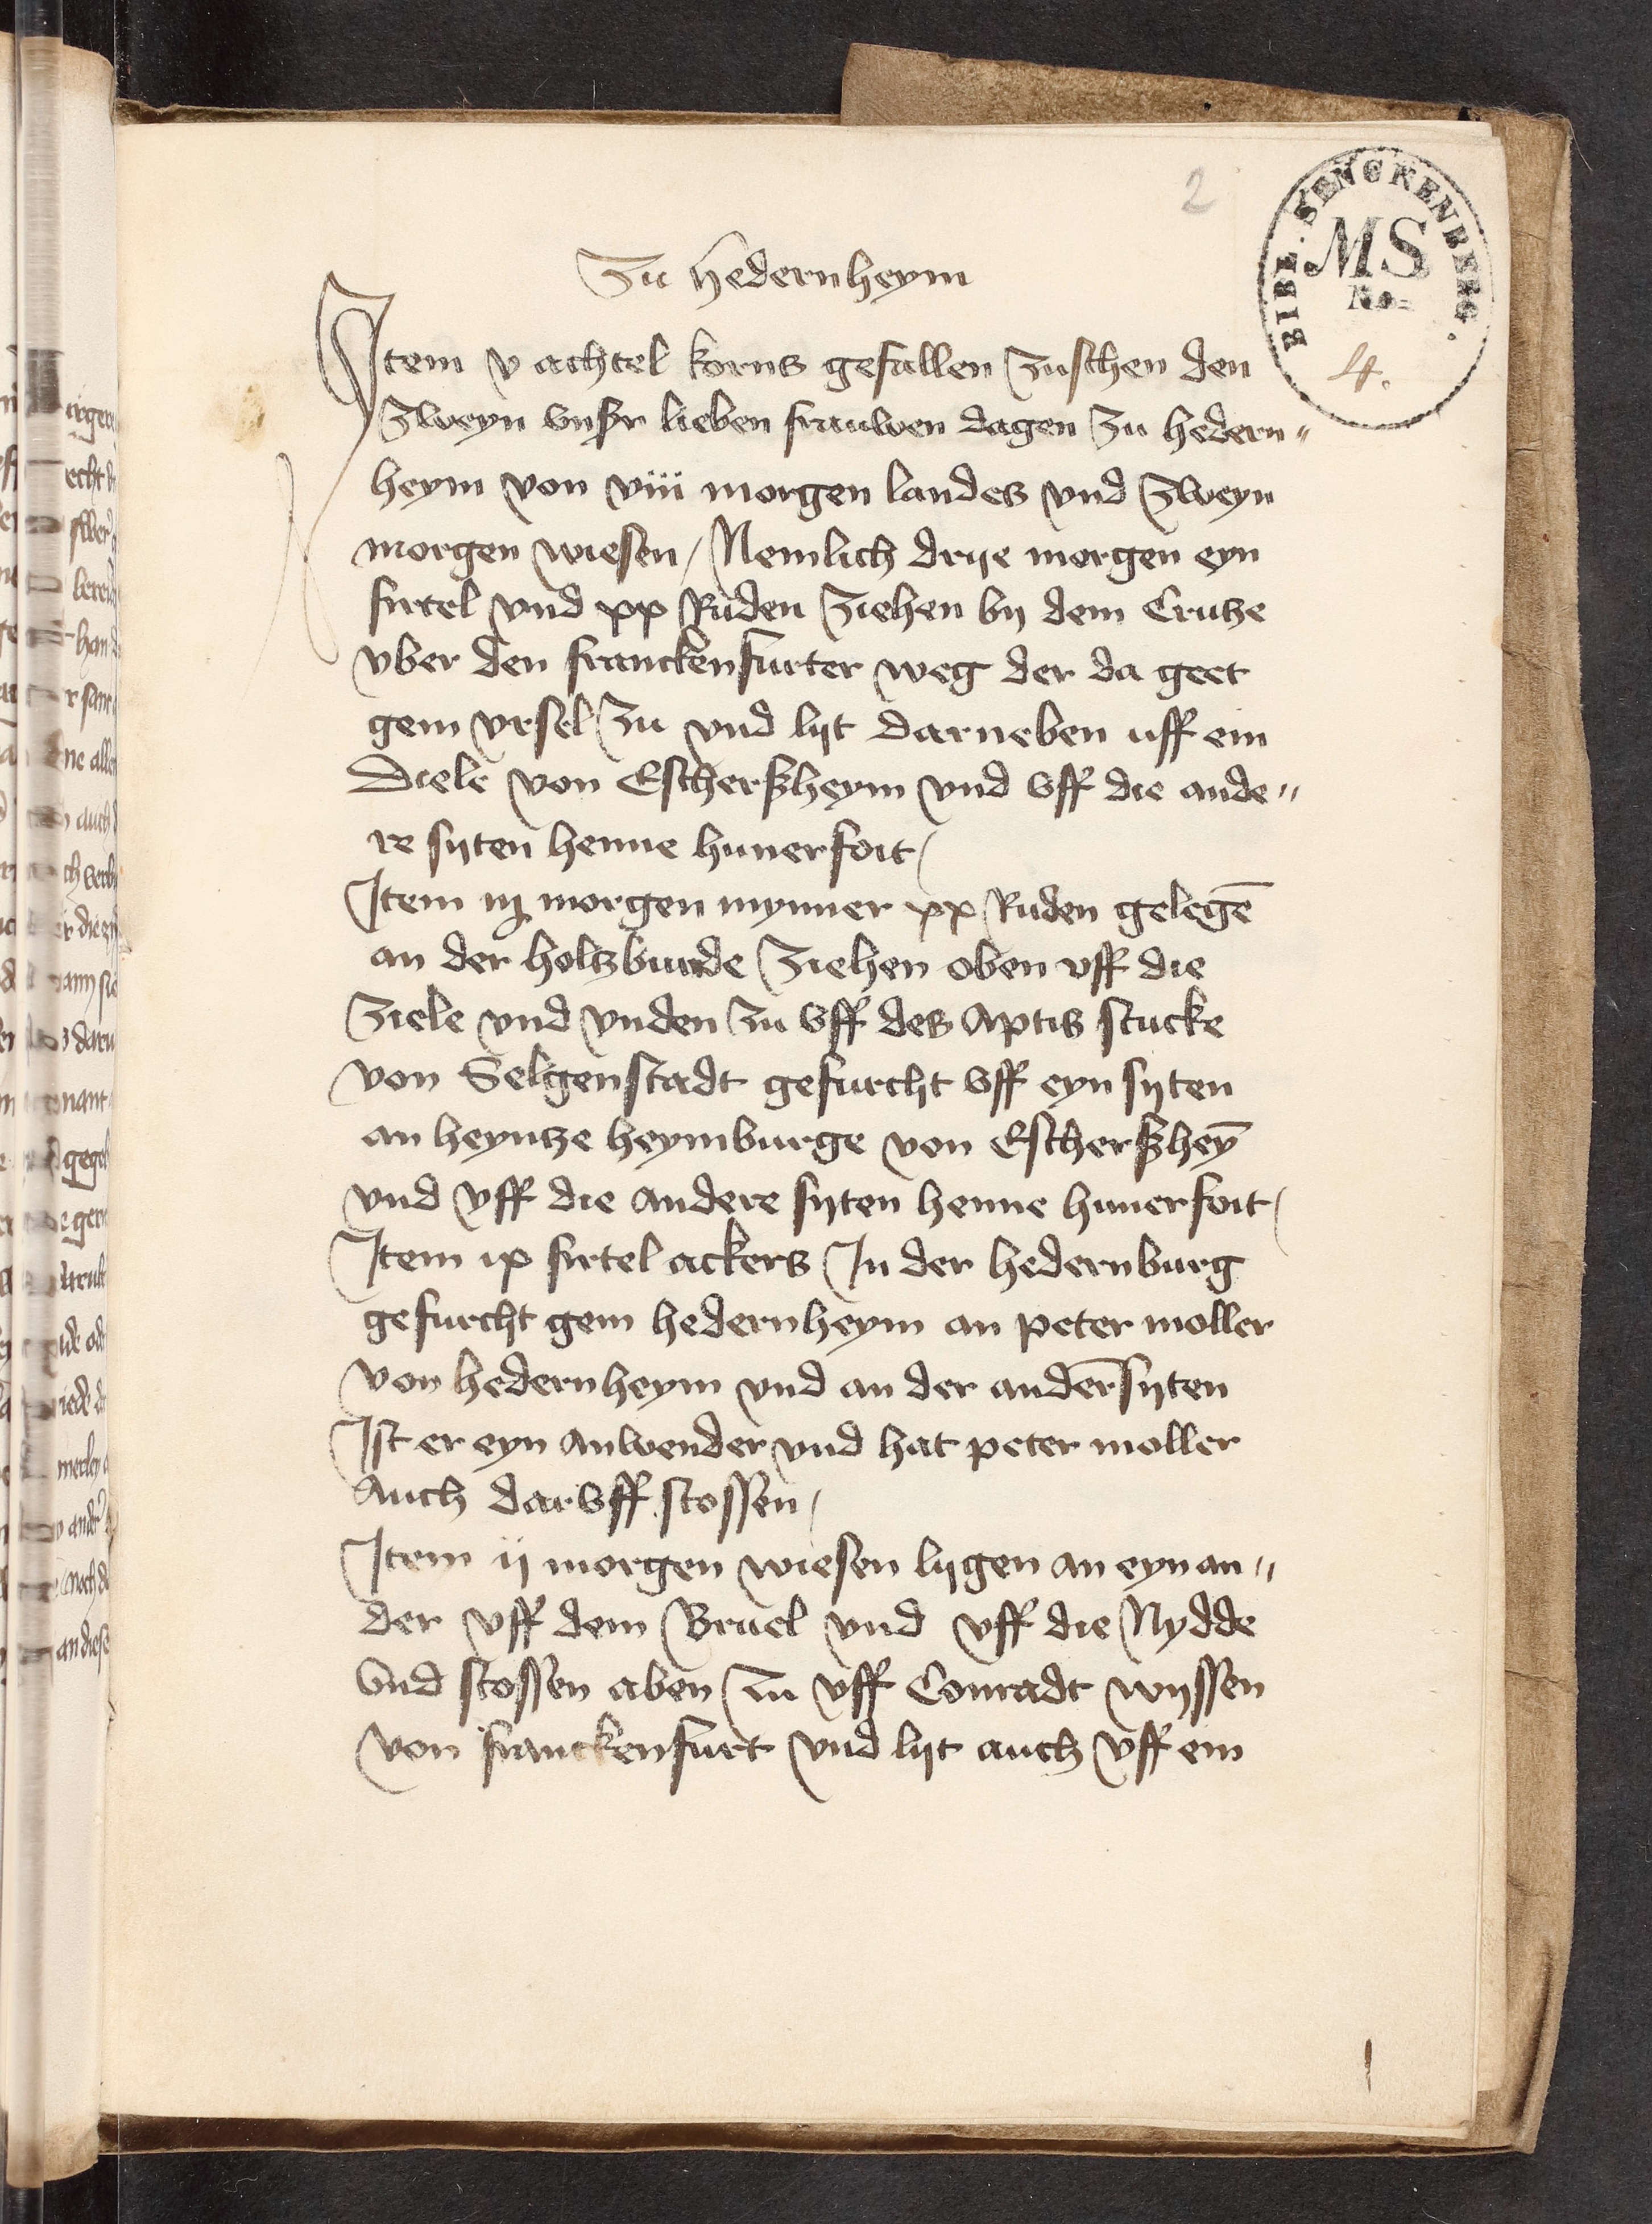 2
BIBL. SENCKENBERG.
MS
No.
4.
Zu hedernheym
Item v achtel korns gefallen zuschen den
zweyn vnsyr lieben frauwen dagen zu hedern„
heym von viii morgen landes vnd zweyn
morgen wiesen / Nemlich drije morgen eyn
firtel vnd xx Ruden ziehen by dem Crutze
vber den franckenfurter weg der da geet
gem vrsel zu vnd lijt darneben uff ein
diele von Escherßheym vnd vff die ande„
re sijten henne hunerfoit /
Item iij morgen mynner xx Ruden gelegē
an der holtzbunde ziehen oben vff die
ziele vnd vnden zu vff des Aptis stucke
von Selgenstadt gefurcht vff eyn sijten
an heyntze heymburge von Escherßhey̅
vnd vff die andere sijten henne hunerfoit /
Item ix firtel ackers In der hedernburg
gefurcht gem hedernheym an peter moller
von hedernheym vnd an der ander̅ sijten
Ist er eyn Anwender vnd hat peter moller
Auch dar vff stossen /
Item ij morgen wiesen lijgen an eyn an„
der vff dem Bruel vnd vff die Nydde
Vnd stossen aben zu vff Conradt wyssen
von franckenfurt vnd lijt auch vff ein